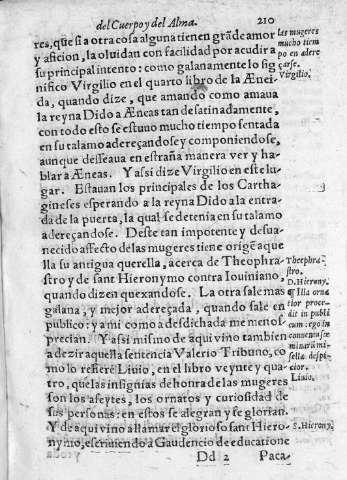 del Cuerpo y del Alma. 210
res, que si a otra cosa alguna tienen grãde amor
y aficion, la oluidan con facilidad por acudir a
su principal intento: como galanamente lo sig
nifico Virgilio en el quarto libro de la Æнei
da, quando dize, que amando como amaua
la reyna Dido a Æneas tan desatinadamente,
con todo esto se estuuo mucho tiempo sentada
en su talamo adereçandose y componiendose,
aunque desseaua en estraña manera ver y ha-
blar a Æneas. Y assi dize Virgilio en este lu-
gar. Estauan los principales de los Cartha
gineses esperando a la reyna Dido a la entra-
da de la puerta, la qual se detenia en su talamo
adereçandose. Deste tan impotente y desua-
necido affecto de las mugeres tiene origẽ aque
lla su antigua querella, acerca de Theophra-
stro y de sant Hieronymo contra Iouiniano,
quando dizen quexandose. La otra sale mas
galana, y mejor adereçada, quando sale en
publico: y a mi como a desdichada me menos
precian. Y assi mismo de aqui vino tambien
a dezir aquella sentencia Valerio Tribuno, co
mo lo refiere Liuio, en el libro veynte y qua-
tro, que las insignias de honra de las mugeres
son los afeytes, los ornatos y curiosidad de
sus personas: en estos se alegran y se glorian.
Y de aqui vino a llamar el glorioso sant Hiero-
nymo, escriuiendo a Gaudencio de educatione
Dd 2 Paca-
las mugeres
mucho tiem
po en adere
çarse.
Virgilio.
Theophra-
stro.
D. Hierony.
¶ Illa orna
tior proce-
dit in publi
cum: ego in
conuentu fæ
minarū mi
sella despi-
cior.
Liuio.
S. Hierony.